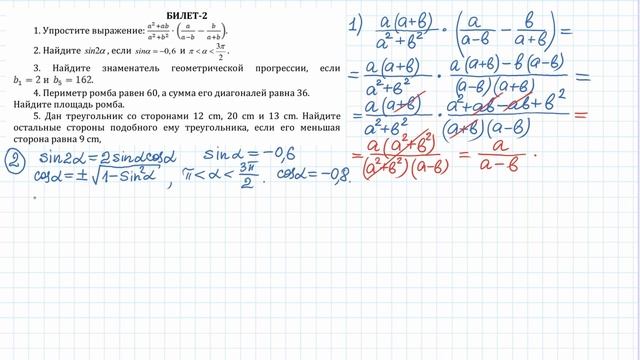 БИЛЕТ-2
1. Упростите выражение: \frac{a^2+ab}{a^2+b^2} \cdot \left(\frac{a}{a-b} - \frac{b}{a+b}\right).
2. Найдите sin2α, если sinα = −0,6 и π < α < \frac{3π}{2}.
3. Найдите знаменатель геометрической прогрессии, если
b_1 = 2 и b_5 = 162.
4. Периметр ромба равен 60, а сумма его диагоналей равна 36.
Найдите площадь ромба.
5. Дан треугольник со сторонами 12 cm, 20 cm и 13 cm. Найдите
остальные стороны подобного ему треугольника, если его меньшая
сторона равна 9 cm,
1) \frac{a(a+b)}{a^2+b^2} \cdot \left(\frac{a}{a-b} - \frac{b}{a+b}\right) =
= \frac{a(a+b)}{a^2+b^2} \cdot \frac{a(a+b) - b(a-b)}{(a-b)(a+b)} =
= \frac{a(a+b)}{a^2+b^2} \cdot \frac{a^2+ab-ab+b^2}{(a+b)(a-b)} =
= \frac{a(a^2+b^2)}{(a^2+b^2)(a-b)} = \frac{a}{a-b}.
2) sin2α = 2sinαcosα sinα = −0,6
cosα = ±\sqrt{1-Sin^2α}, π < α < \frac{3π}{2}. cosα = −0,8.